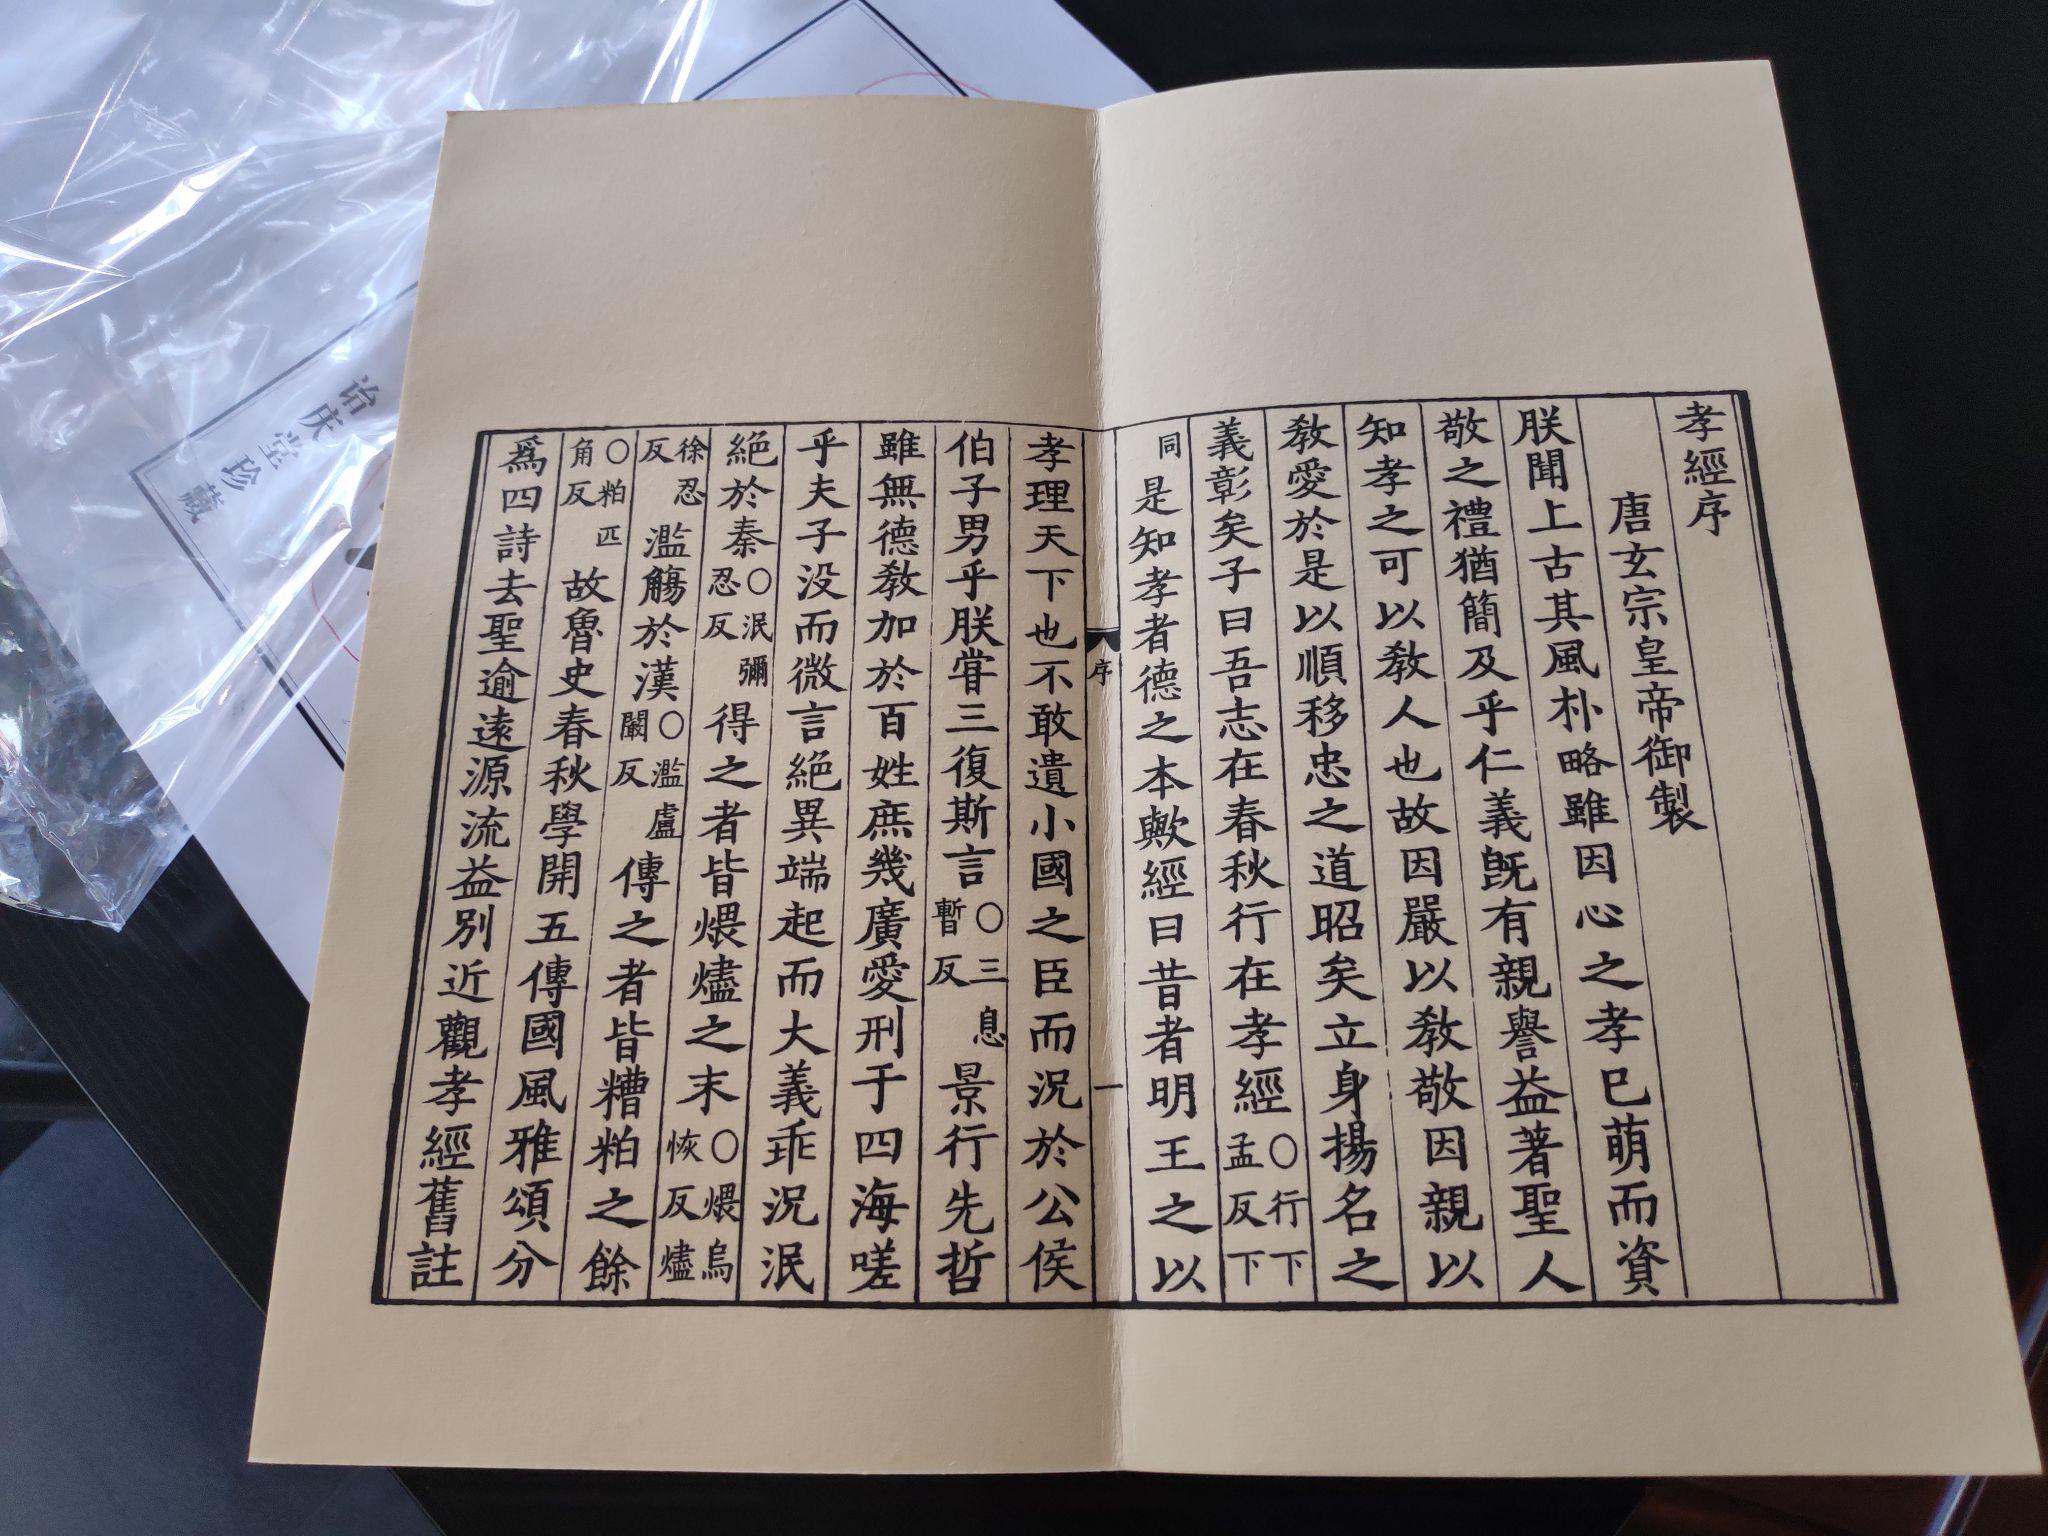 孝經序
唐玄宗皇帝御製
朕聞上古其風朴略雖因心之孝已萌而資
敬之禮猶簡及乎仁義旣有親譽益著聖人
知孝之可以敎人也故因嚴以敎敬因親以
敎愛於是以順移忠之道昭矣立身揚名之
義彰矣子曰吾志在春秋行在孝經○行下孟反下
同是知孝者德之本歟經曰昔者明王之以
序 一
孝理天下也不敢遺小國之臣而況於公侯
伯子男乎朕嘗三復斯言○三息暫反景行先哲
雖無德敎加於百姓庶幾廣愛刑于四海嗟
乎夫子没而微言絶異端起而大義乖況泯
絶於秦○泯彌忍反得之者皆煨燼之末○煨烏恢反燼
徐忍反濫觴於漢○濫盧闞反傳之者皆糟粕之餘
○粕匹角反故魯史春秋學開五傳國風雅頌分
爲四詩去聖逾遠源流益別近觀孝經舊註
诒庆堂珍藏